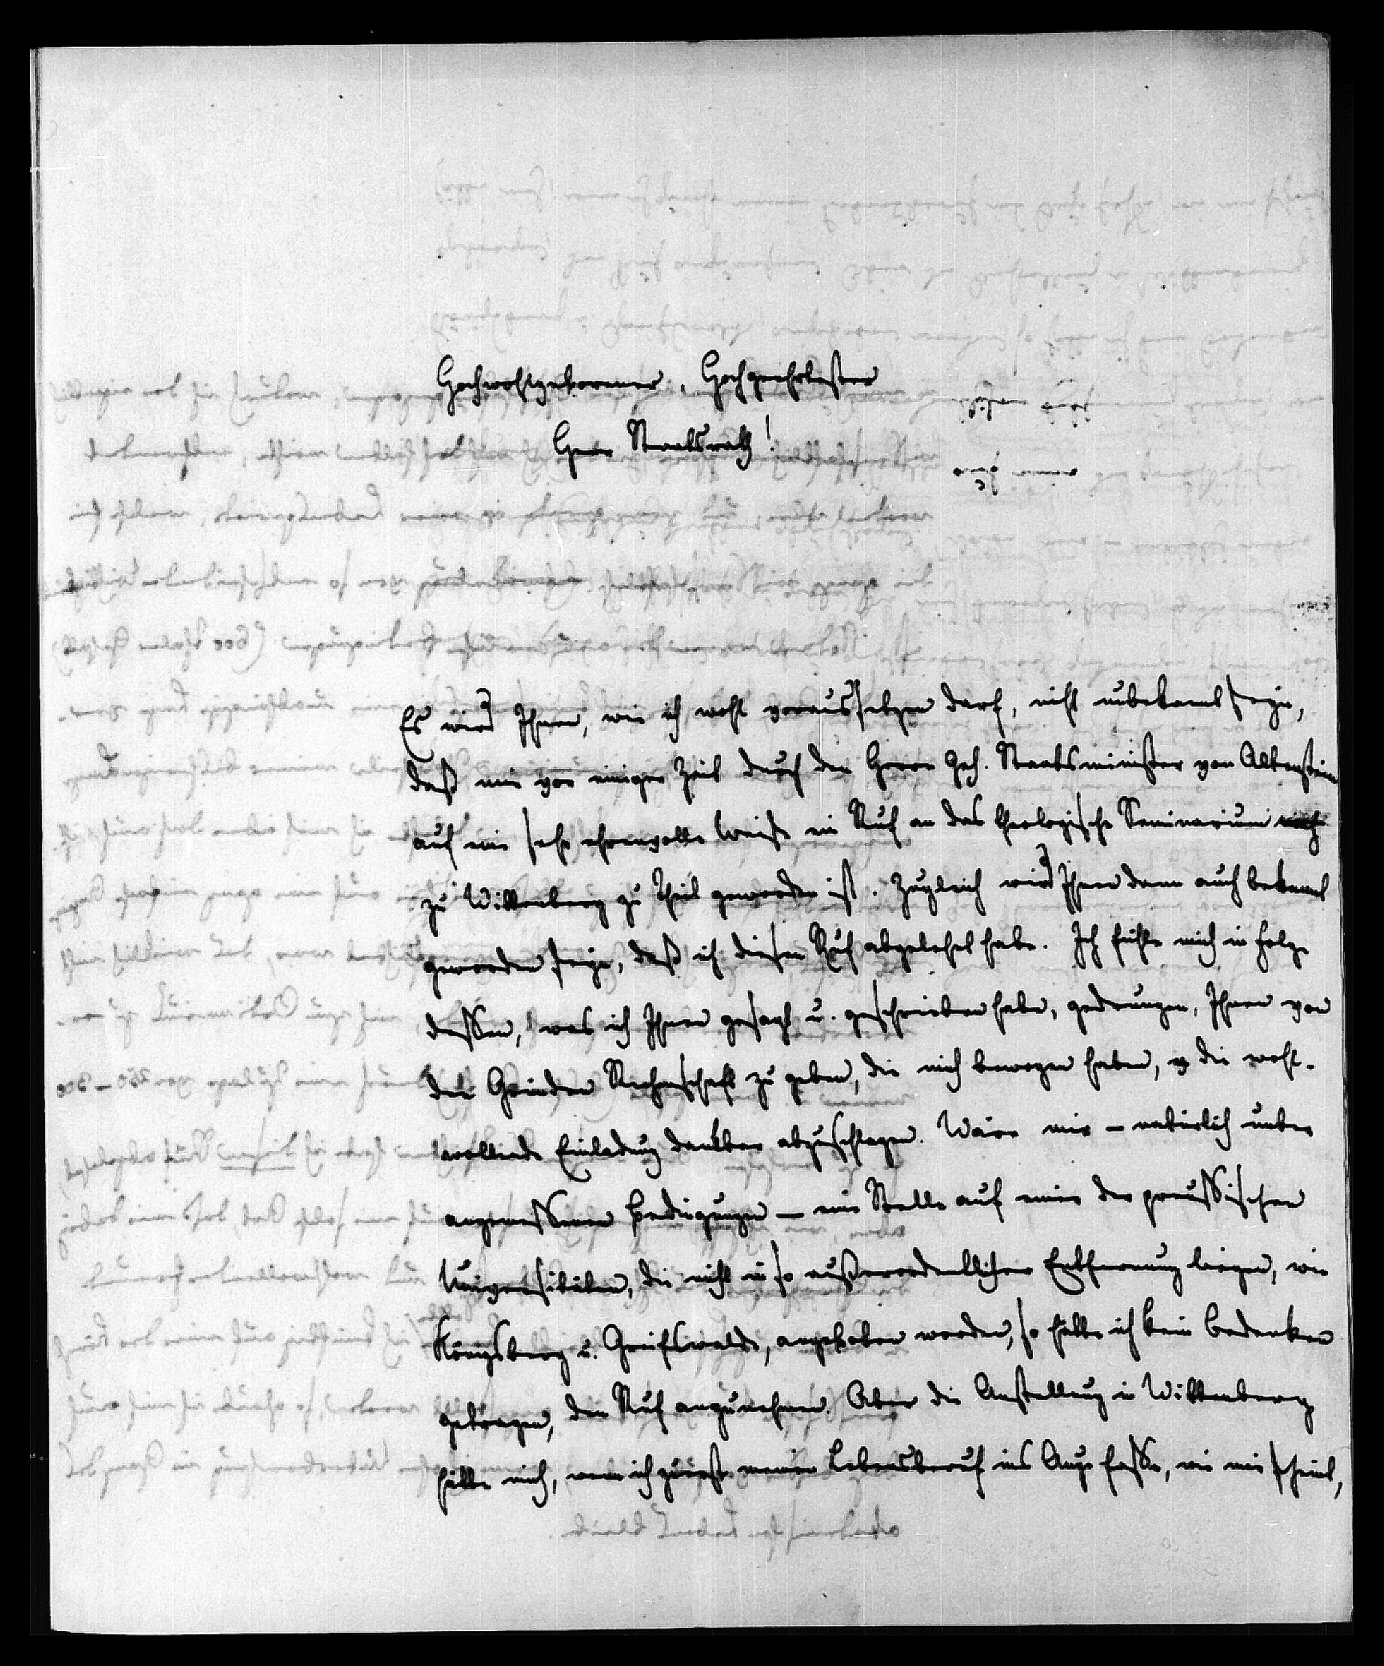 Hochwohlgeborner, Hochgeehrtester
Herr Staatsrath!
Es wird Ihnen, wie ich wohl voraussetzen darf, nicht unbekannt seyn,
daß mir vor einiger Zeit durch den Herrn Geh. Staatsminister von Altenstein
auf eine sehr ehrenvolle Weise ein Ruf an das theologische Seminarium
zu Wittenberg zu Theil geworden ist. Zugleich wird Ihnen denn auch bekannt
geworden seyn, daß ich diesen Ruf abgelehnt habe. Ich fühle mich in Folge
dessen, was ich Ihnen gesagt u. geschrieben habe, gedrungen, Ihnen von
den Gründen Rechenschaft zu geben, die mich bewogen haben, die wohl-
wollende Einladung dankbar abzuschlagen. Wäre mir – natürlich unter
angemessenen Bedingungen – eine Stelle auf einer der preussischen
Universitäten, die nicht in so außerordentlicher Entfernung liegen, wie
Königsberg u. Greifswalde, angeboten worden, so hätte ich kein Bedenken
getragen, den Ruf anzunehmen. Aber die Anstellung in Wittenberg
hätte mich, wenn ich zuerst meinen Lebensberuf ins Auge fasse, wie mir scheint,